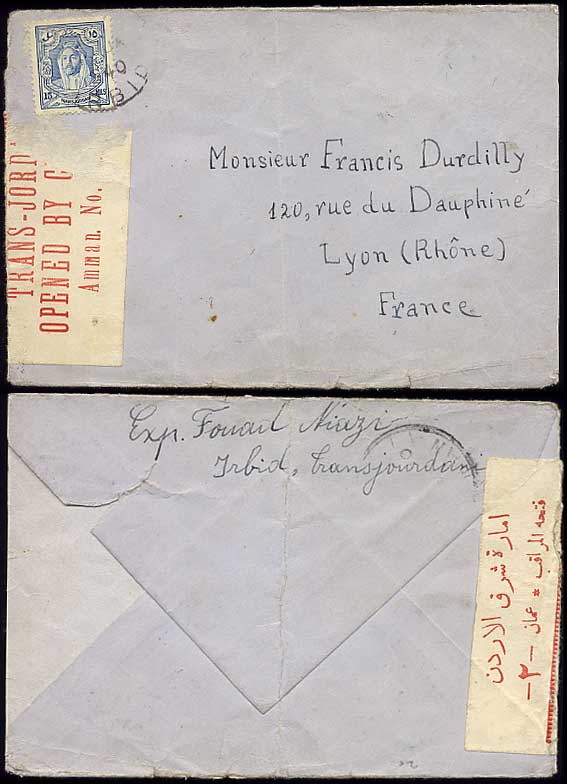 ١٥
15
MILS
TRANSJORDAN
40
BID
TRANS-JORD
OPENED BY C
Amman. No.
Monsieur Francis Durdilly
120, rue du Dauphiné
Lyon (Rhône)
France
Exp. Fouad Niazi
Irbid, Transjourdani
امارة شرق الاردن
فتحه المراقب * عمان
-٢-